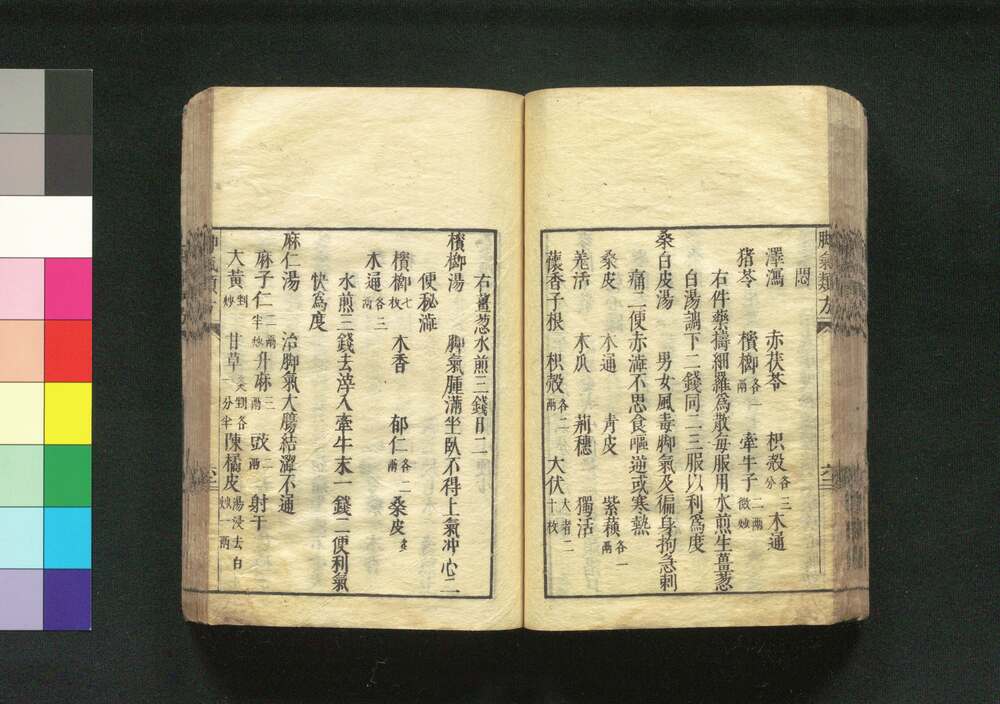 脚氣類方
悶
澤瀉　赤茯苓　枳殻各三分　木通
猪苓　檳榔各一兩　牽牛子二兩微炒
右件藥擣細羅爲散毎服用水煎生薑葱
白湯調下二錢同二三服以利爲度
桑白皮湯　男女風毒脚氣及徧身拘急刺
痛二便赤澁不思食嘔逆或寒熱
桑皮　木通　青皮　紫蘓各一兩
羗活　木爪　荊穗　獨活
蘹香子根　枳殻各二兩　大伏大者二十枚
右薑葱水煎三錢日二
檳榔湯　脚氣腫滿坐臥不得上氣冲心二
便秘澁
檳榔七枚　木香　郁仁各二兩　桑皮
木通各三兩
水煎三錢去滓入牽牛末一錢二便利氣
快爲度
麻仁湯　治脚氣大膓結澀不通
麻子仁二兩半　升麻三兩　豉二兩　射干
大黄剉炒　甘草炙剉各一分半　陳橘皮湯浸去白炒一兩